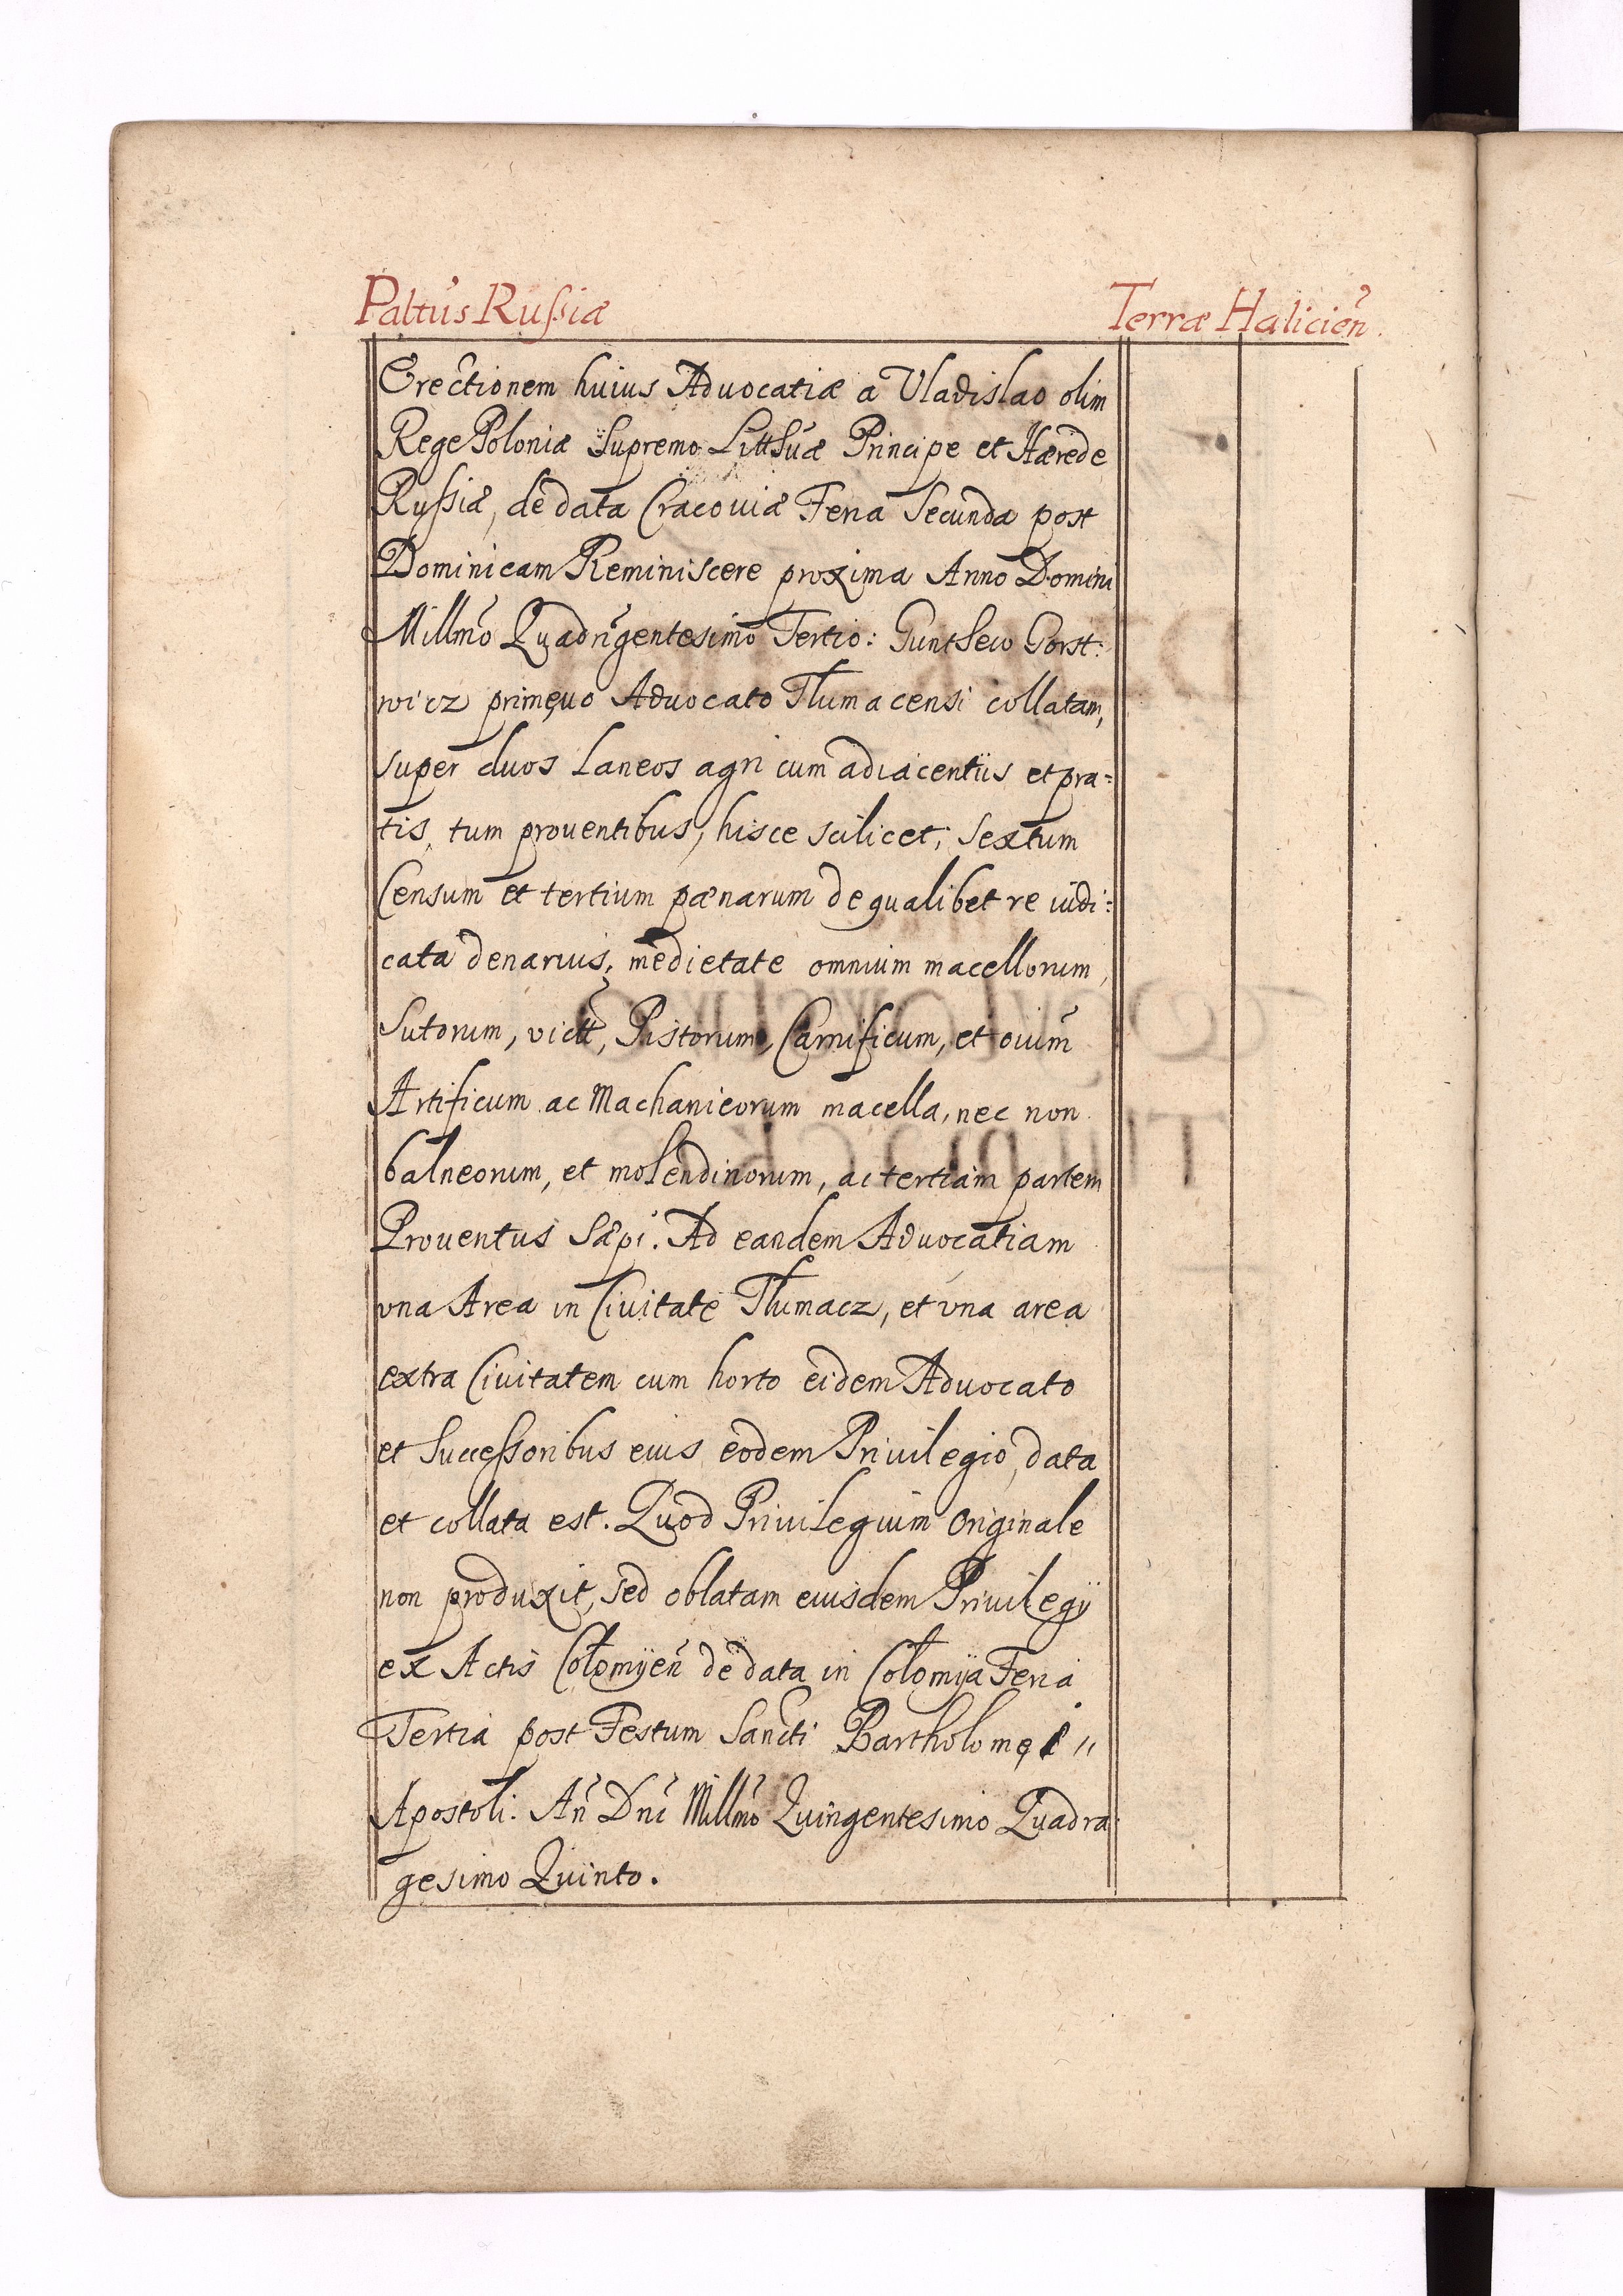 Paltus Russiæ
Terræ Halicien̄.
Erectionem huius Advocatiæ a Vladislao olim
Rege Poloniæ Supremo Litthuæ Principe et Hærede
Russiæ, de data Cracouiæ Feria Secunda post
Dominicam Reminiscere proxima Anno Domini
Millmo Quadringentesimo Tertio: Gunthero Gorst:
wicz primęuo Advocato Tłumacensi collatam,
super duos Laneos agri cum adiacentiis et pra=
tis, tum prouentibus, hisce scilicet; Sextum
Censum et tertium pænarum de qualibet re iudi:
cata denarius, medietate omnium macellorum,
Sutorum, victt, Pistorum, Carnificum, et oium̄
Artificum ac Machanicorum macella, nec non
balneorum, et molendinorum, ac tertiam partem
Prouentus Sæpi. Ad eandem Advocatiam
vna Area in Ciuitate Tłumacz, et vna area
extra Ciuitatem cum horto eidem Advocato
et Successoribus eius eodem Priuilegio, data
et collata est. Quod Priuilegium Originale
non produxit, sed oblatam eiusdem Priuilegÿ
ex Actis Colomÿen̄ de data in Colomÿa Feria
Tertia post Festum Sancti Bartholomęi "
Apostoli. An̄ Dni Millmo Quingentesimo Quadra
gesimo Quinto.